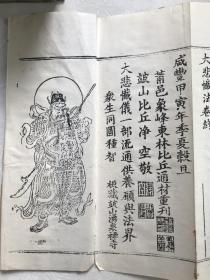 大悲懺法卷終
咸豐甲寅年季春穀旦
莆邑象峰東林比丘通材重刊
鼓山比丘净空敬
大悲懺儀一部流通供養願與法界
衆生同圓種智
板藏鼓山湧泉禪寺